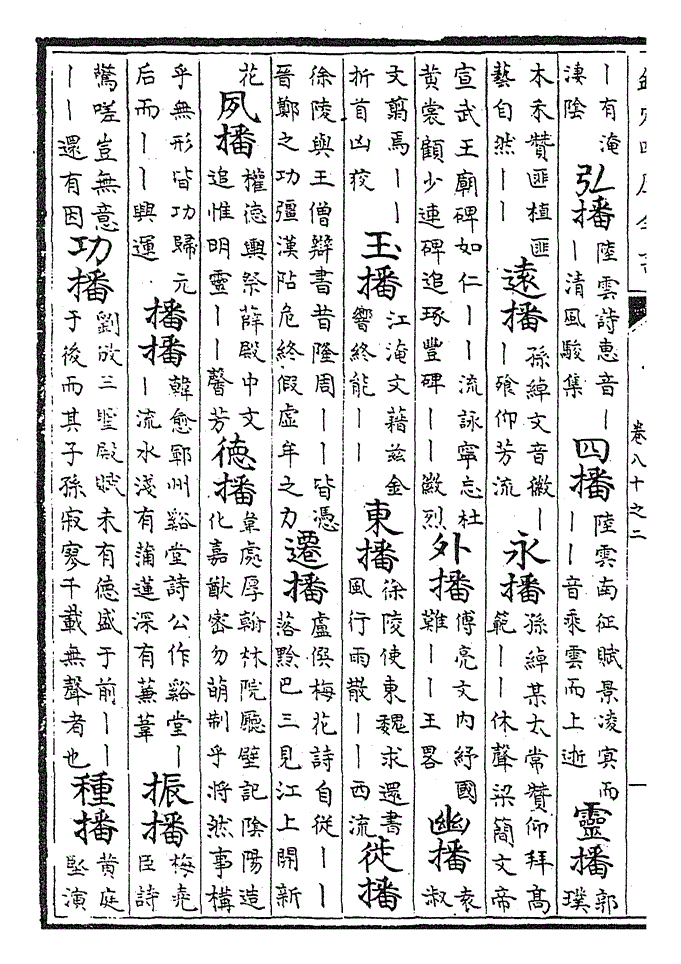 欽定四庫全書
卷八十之二
丨有淹淒陰 弘播 陸雲詩惠音丨丨清風駿集 四播 陸雲南征賦景凌㝠而丨丨音乘雲而上逝 靈播 郭璞
木禾賛匪植匪藝自然丨丨 遠播 孫綽文音徽丨丨飱仰芳流 永播 孫綽某太常賛仰拜髙範丨丨休聲梁簡文帝
宣武王廟碑如仁丨丨流詠寧忘杜黄裳顧少連碑追琢豐碑丨丨徽烈 外播 傅亮文内紓國難丨丨王畧 幽播 袁淑
文翦焉丨丨折首凶狡 玉播 江淹文藉兹金響終能丨丨 東播 徐陵使東魏求還書風行雨散丨丨西流 徙播
徐陵與王僧辯書昔隆周丨丨皆憑晉鄭之功彊漢阽危終假虚牟之力 遷播 盧僎梅花詩自從丨丨落黔巴三見江上開新
花 夙播 權德輿祭薛殿中文追惟明靈丨丨馨芳 德播 韋處厚翰林院廳壁記隂陽造化嘉猷密勿萌制乎將然事構
乎無形皆功歸元后而丨丨興運 播播 韓愈鄆州谿堂詩公作谿堂丨丨流水淺有蒲蓮深有蒹葦 振播 梅堯臣詩
驚嗟豈無意丨丨還有因 功播 劉攽三聖殿賦未有德盛于前丨丨于後而其子孫寂寥千載無聲者也 種播 黄庭堅演